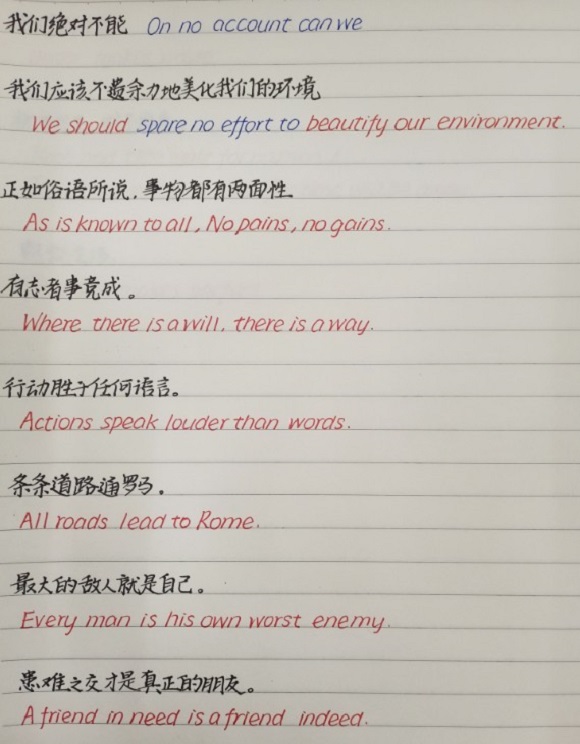 我们绝对不能 On no account can we
我们应该不遗余力地美化我们的环境
We should spare no effort to beautify our environment.
正如俗语所说，事物都有两面性
As is known to all, No pains, no gains.
有志者事竟成。
Where there is a will, there is a way.
行动胜于任何语言。
Actions speak louder than words.
条条道路通罗马。
All roads lead to Rome.
最大的敌人就是自己。
Every man is his own worst enemy.
患难之交才是真正的朋友。
A friend in need is a friend indeed.